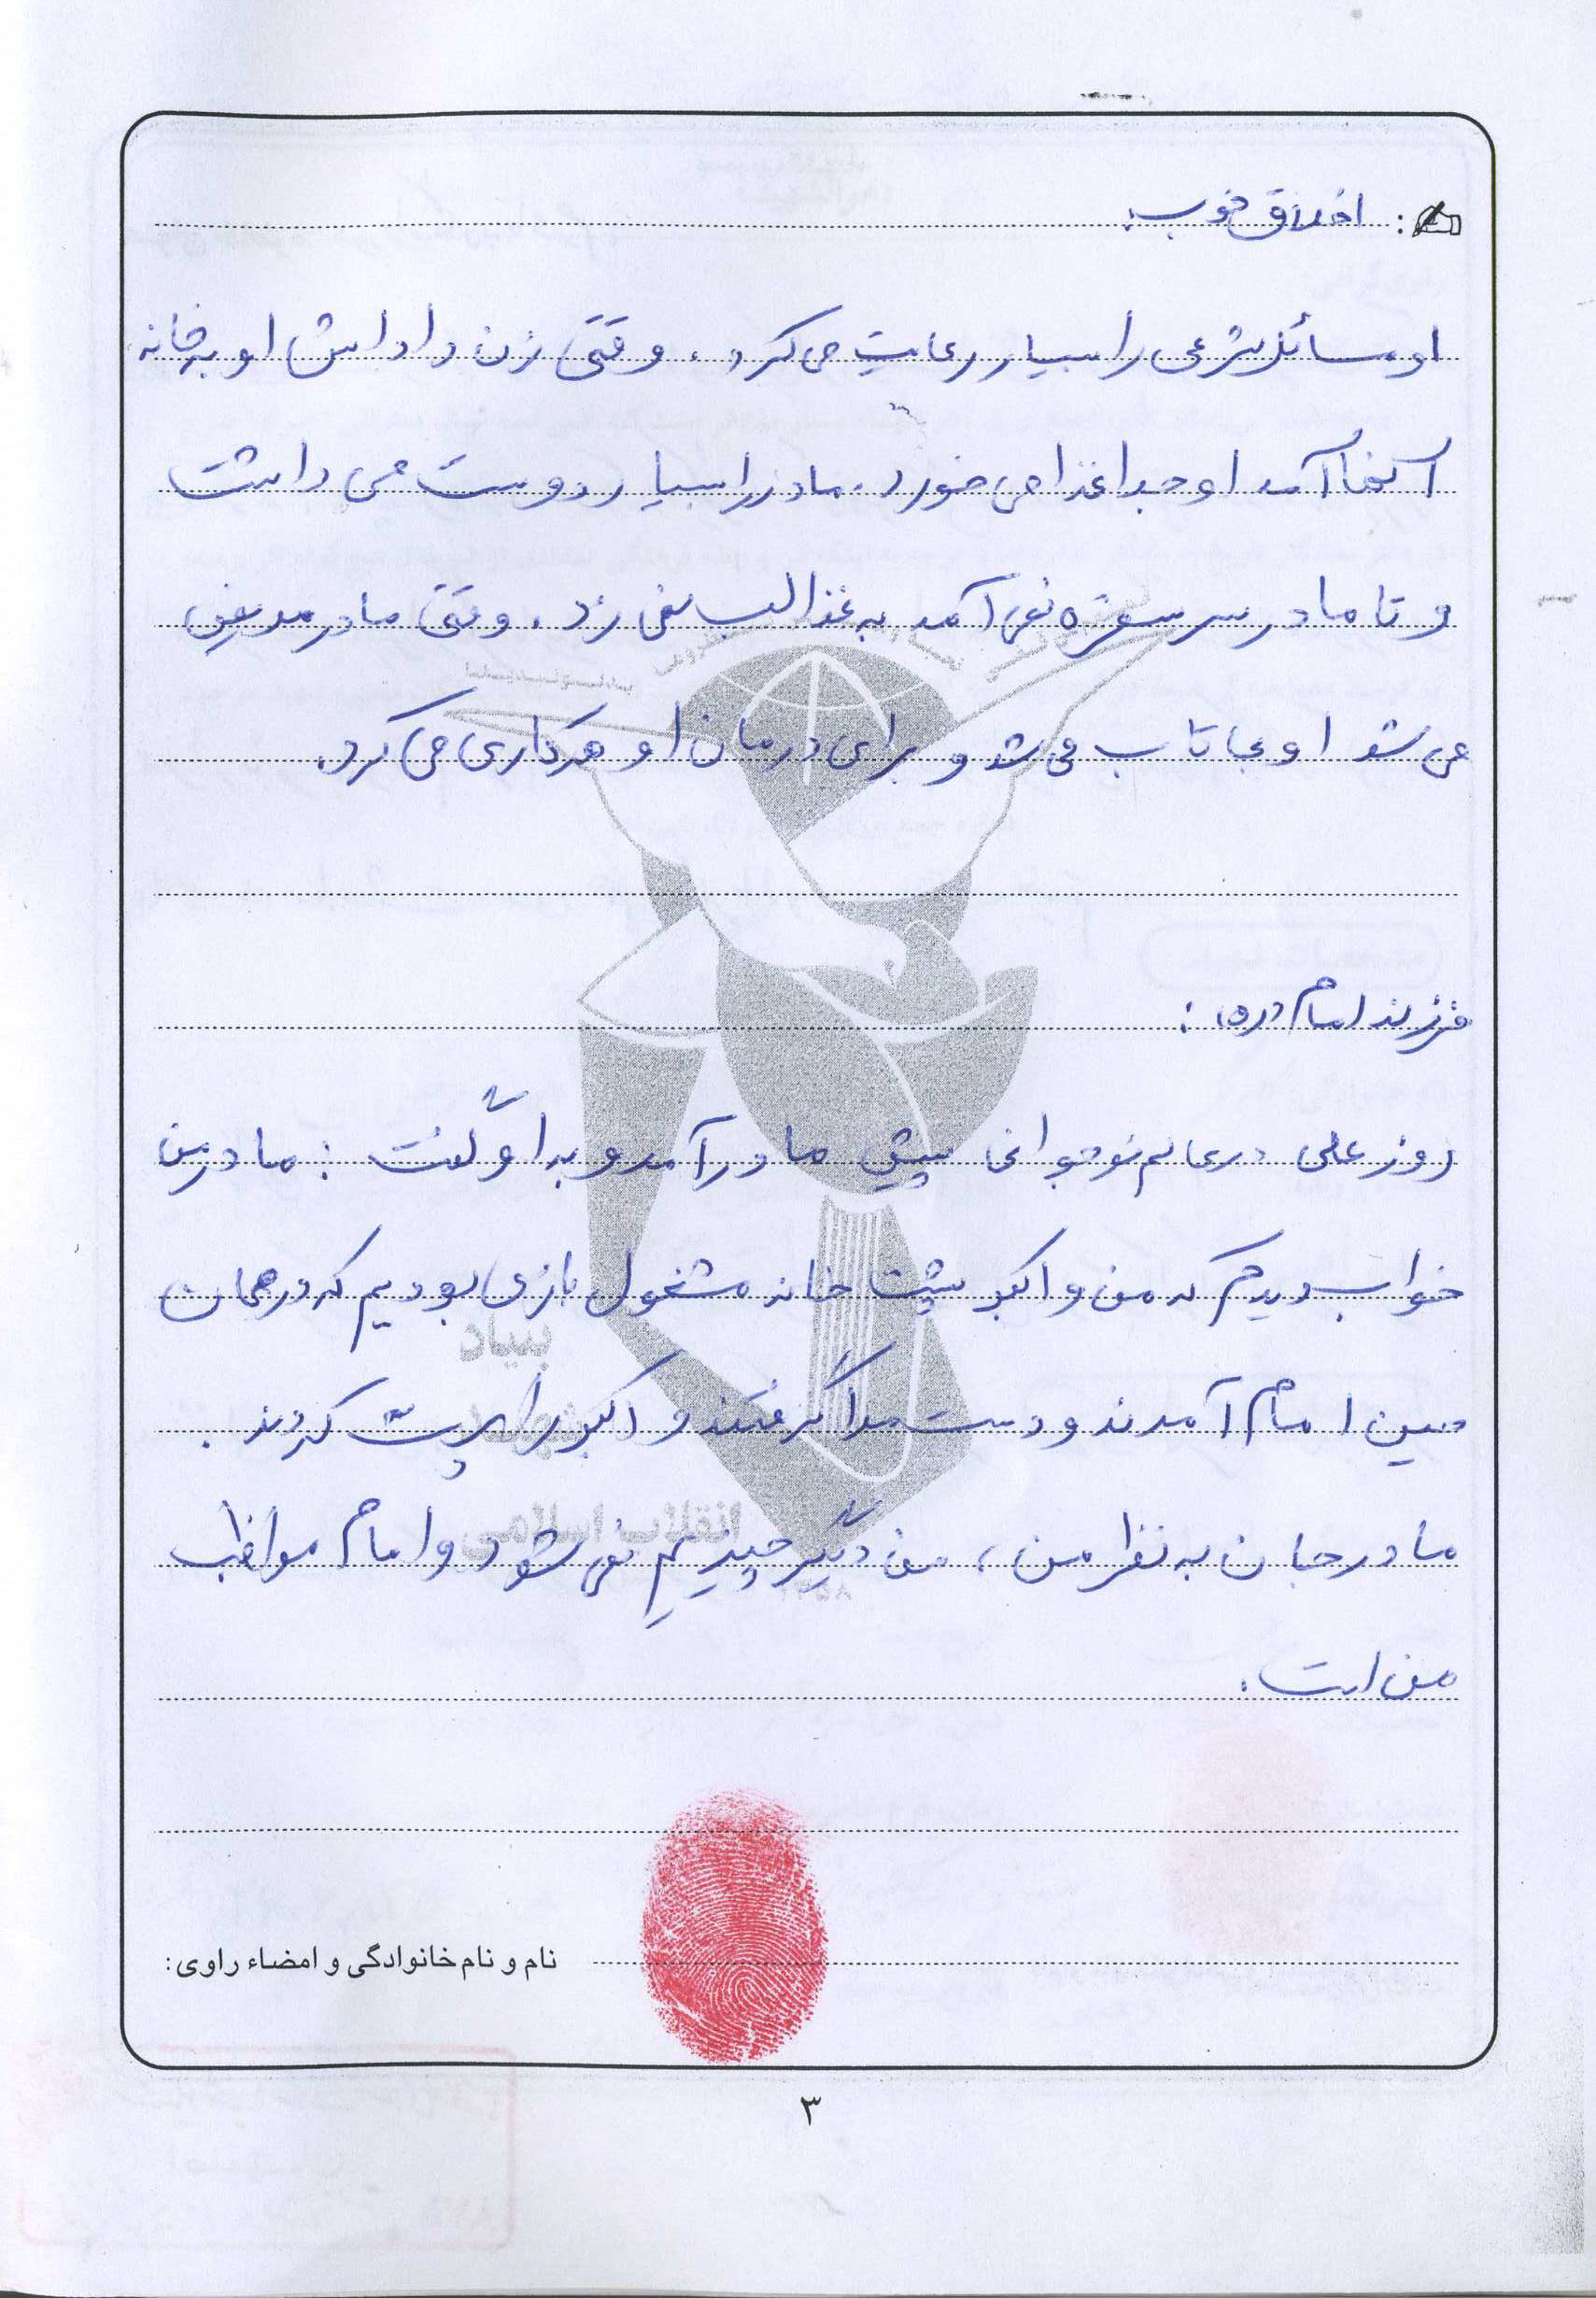 اخلاق خوب:
او مسائل شرعی را بسیار رعایت می کرد. وقتی زن داداش او به خانه
آنها آمد او جدا غذا می خورد. مادر را بسیار دوست می داشت
و تا مادر سر سفره نمی آمد به غذا لب نمی زد. وقتی مادر مریض
می شد او بی تاب می شد و برای درمان او هر کاری می کرد.
فرزند امام (ره):
روز علی در عالم نوجوانی پیش مادر آمد و به او گفت: مادر من
خواب دیدم که من و اکبر پشت خانه مشغول بازی بودیم که در همان
حین امام آمدند و دست مرا گرفتند و اکبر را پرت کردند.
مادر جان به نظر من، من دیگر چیزیم نمی شود و امام مواظب
من است.
بنیاد
شهید
انقلاب اسلامی
نام و نام خانوادگی و امضاء راوی:
۳